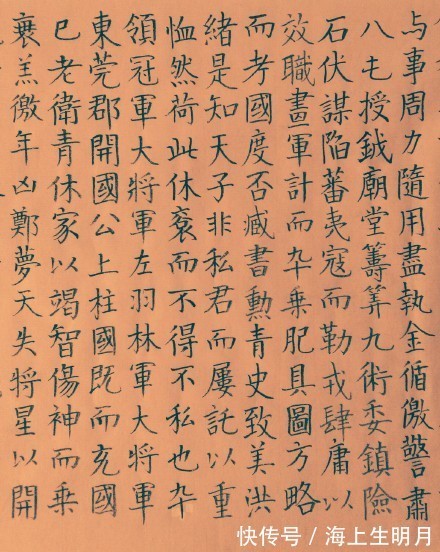 与事周力隨用盡執金循儆警肅
八屯授鉞廟堂籌筭九術委鎮險
石伏謀陷蕃夷寇而勒戎肆庸以
效職畫軍計而卒乗肥具圖方略
而考國度否臧書勳青史致美洪
緒是知天子非私君而屢託以重
恤然荷此休袞而不得不私也卒
領冠軍大將軍左羽林軍大將軍
東莞郡開國公上柱國既而充國
已老衛青休家以竭智傷神而乗
衰羔徵年凶鄭夢天失將星以開
快传号 / 海上生明月